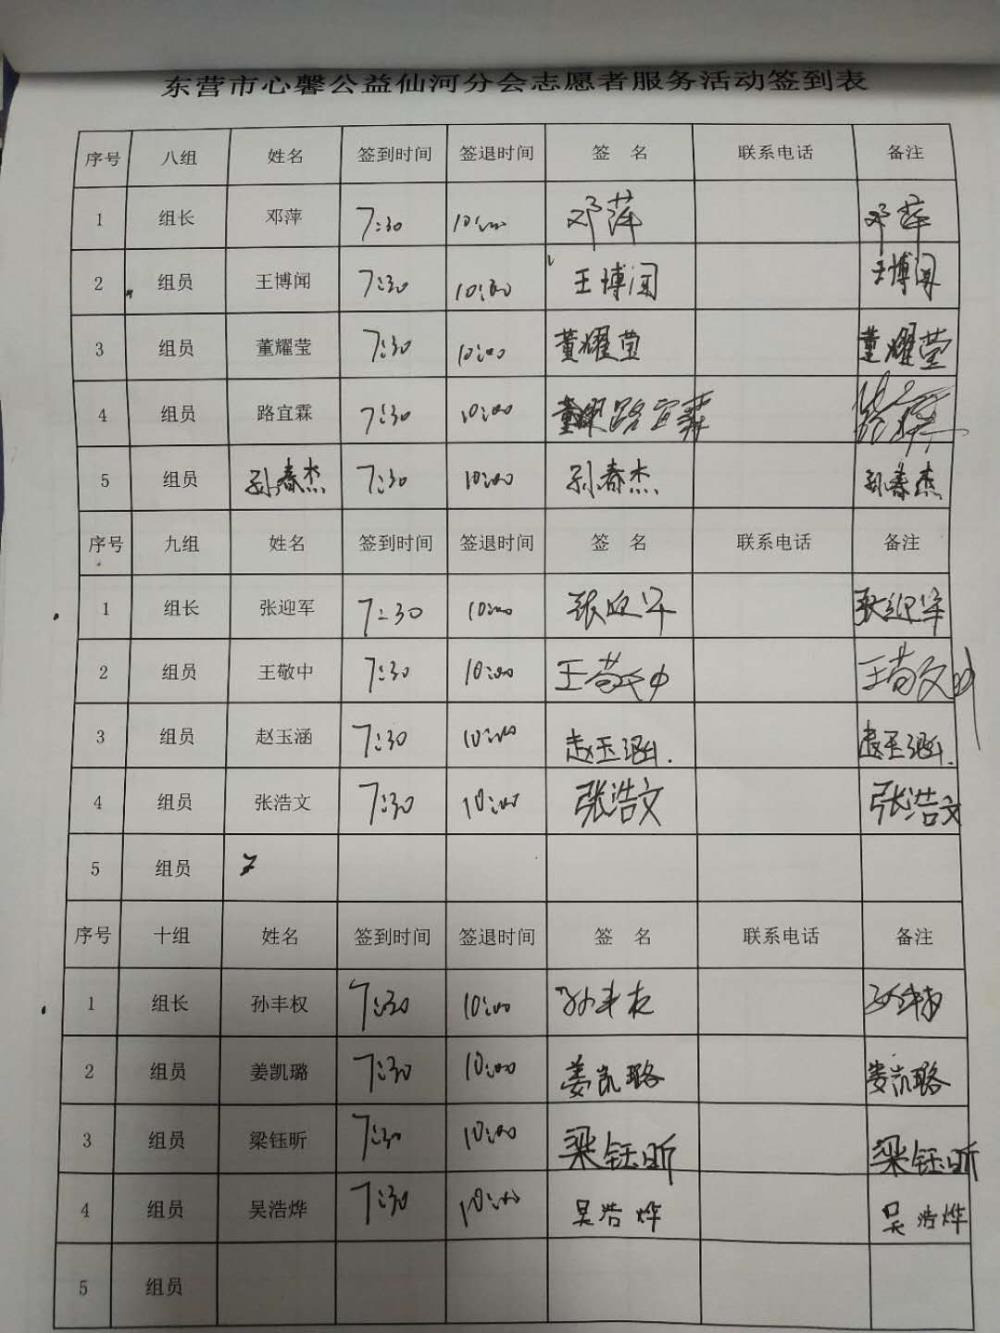 东营市心馨公益仙河分会志愿者服务活动签到表
序号 八组 姓名 签到时间 签退时间 签 名 联系电话 备注
1 组长 邓萍 7:30 10:00 邓萍 邓萍
2 组员 王博闻 7:30 10:00 王博闻 王博闻
3 组员 董耀莹 7:30 10:00 董耀莹 董耀莹
4 组员 路宜霖 7:30 10:00 路宜霖
5 组员 孙春杰 7:30 10:00 孙春杰 孙春杰
序号 九组 姓名 签到时间 签退时间 签 名 联系电话 备注
1 组长 张迎军 7:30 10:00 张迎军 张迎军
2 组员 王敬中 7:30 10:00 王敬中 王敬中
3 组员 赵玉涵 7:30 10:00 赵玉涵. 赵玉涵.
4 组员 张浩文 7:30 10:00 张浩文 张浩文
5 组员
序号 十组 姓名 签到时间 签退时间 签 名 联系电话 备注
1 组长 孙丰权 7:30 10:00 孙丰权 孙丰权
2 组员 姜凯璐 7:30 10:00 姜凯璐 姜凯璐
3 组员 梁钰昕 7:30 10:00 梁钰昕 梁钰昕
4 组员 吴浩烨 7:30 10:00 吴浩烨 吴浩烨
5 组员